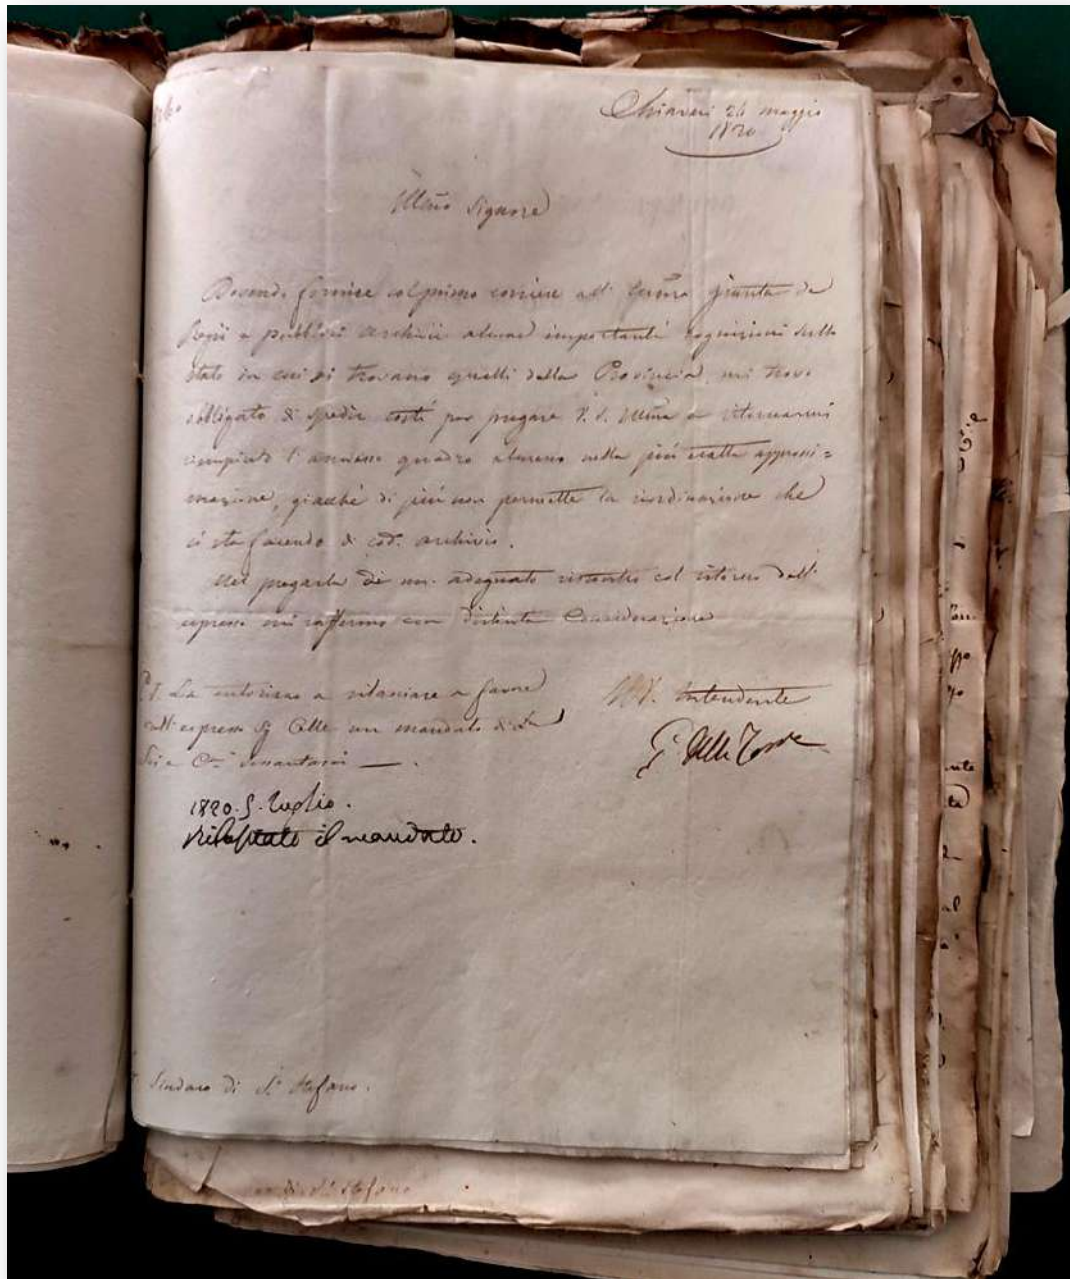 Chiavari 24 maggio
1820
Illmo Signore
Dovendo fornire col primo corriere all' giunta de
Regii e pubblici archivii alcune importanti cognizioni sullo
stato in cui si trovano quelli della Provincia, mi trovo
obbligato di spedir costì per pregare V. S. Illma a ritornarmi
riempiuto l'annesso quadro almeno nella più esatta approssi=
mazione, giacché di più non permette la riordinazione che
si sta facendo di cod. archivii.
Nel pregarla di un adeguato riscontro col ritorno dell'
espresso mi raffermo con distinta Considerazione
P.S. La autorizzo a rilasciare a favore
dell'espresso Colle un mandato di Ln
Sei e Cmi sessantasei —.
Intendente
G. Delle Torre
1820. 5. luglio.
Rilasciato il mandato.
Sindaco di S. Stefano.
di S. Stefano